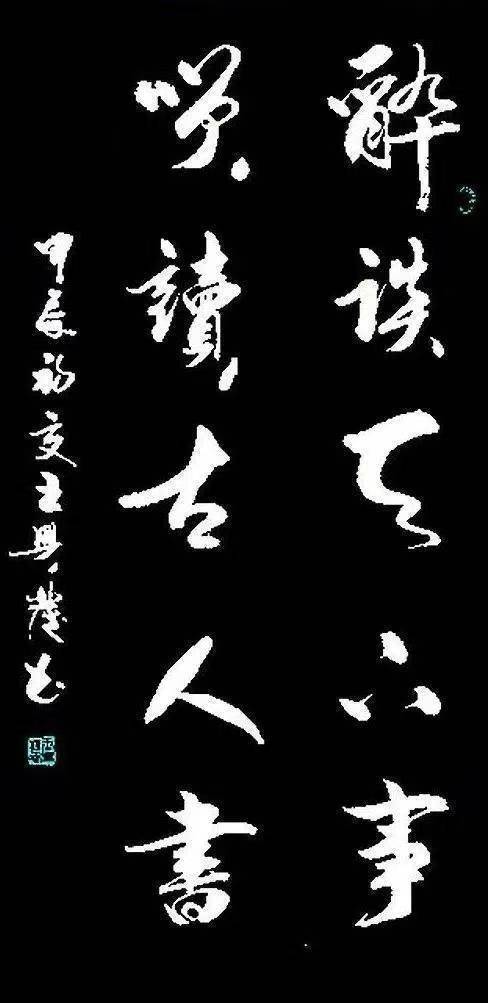 醉談天下事
笑讀古人書
甲辰初夏王興书